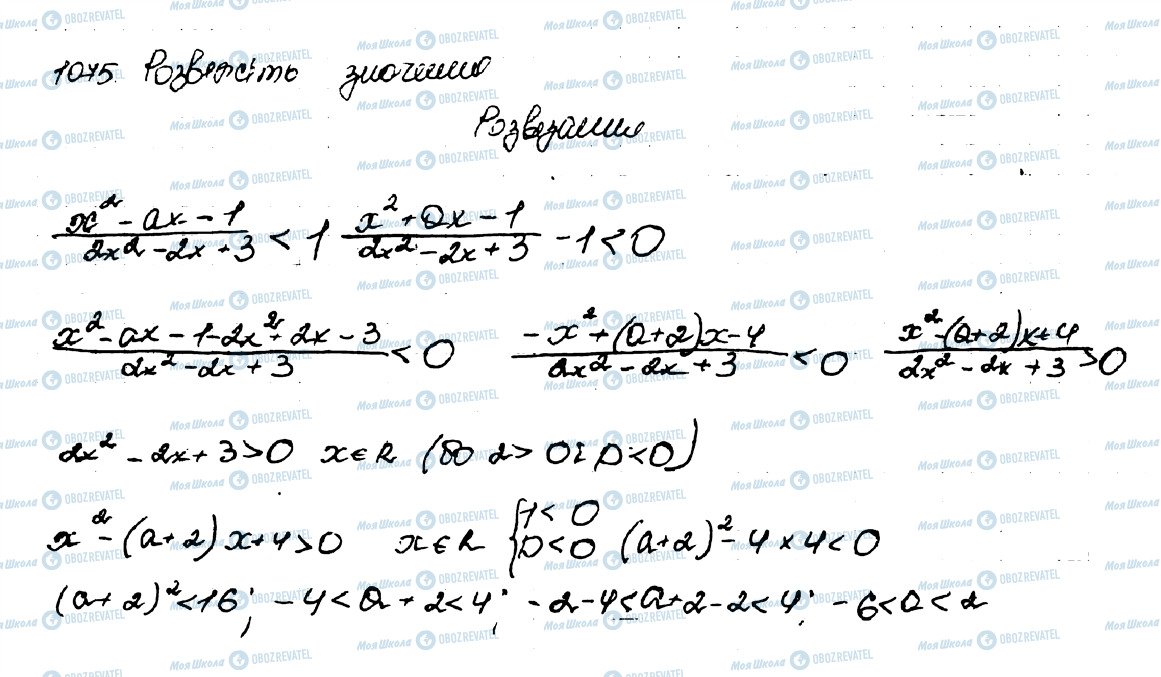 1075. Розвяжіть значення
Розвязання
x² - ax - 1 / 2x² - 2x + 3 < 1 x² + ax - 1 / 2x² - 2x + 3 - 1 < 0
x² - ax - 1 - 2x² + 2x - 3 / 2x² - 2x + 3 < 0 -x² + (a+2)x - 4 / 2x² - 2x + 3 < 0 x² - (a+2)x + 4 / 2x² - 2x + 3 > 0
2x² - 2x + 3 > 0 x ∈ R (бо 2 > 0 і D < 0)
x² - (a+2)x + 4 > 0 x ∈ R { 1 < 0 D < 0 (a+2)² - 4 × 4 < 0
(a+2)² < 16; -4 < a + 2 < 4; -2 - 4 < a + 2 - 2 < 4; -6 < a < 2
Моя Школа OBOZREVATEL